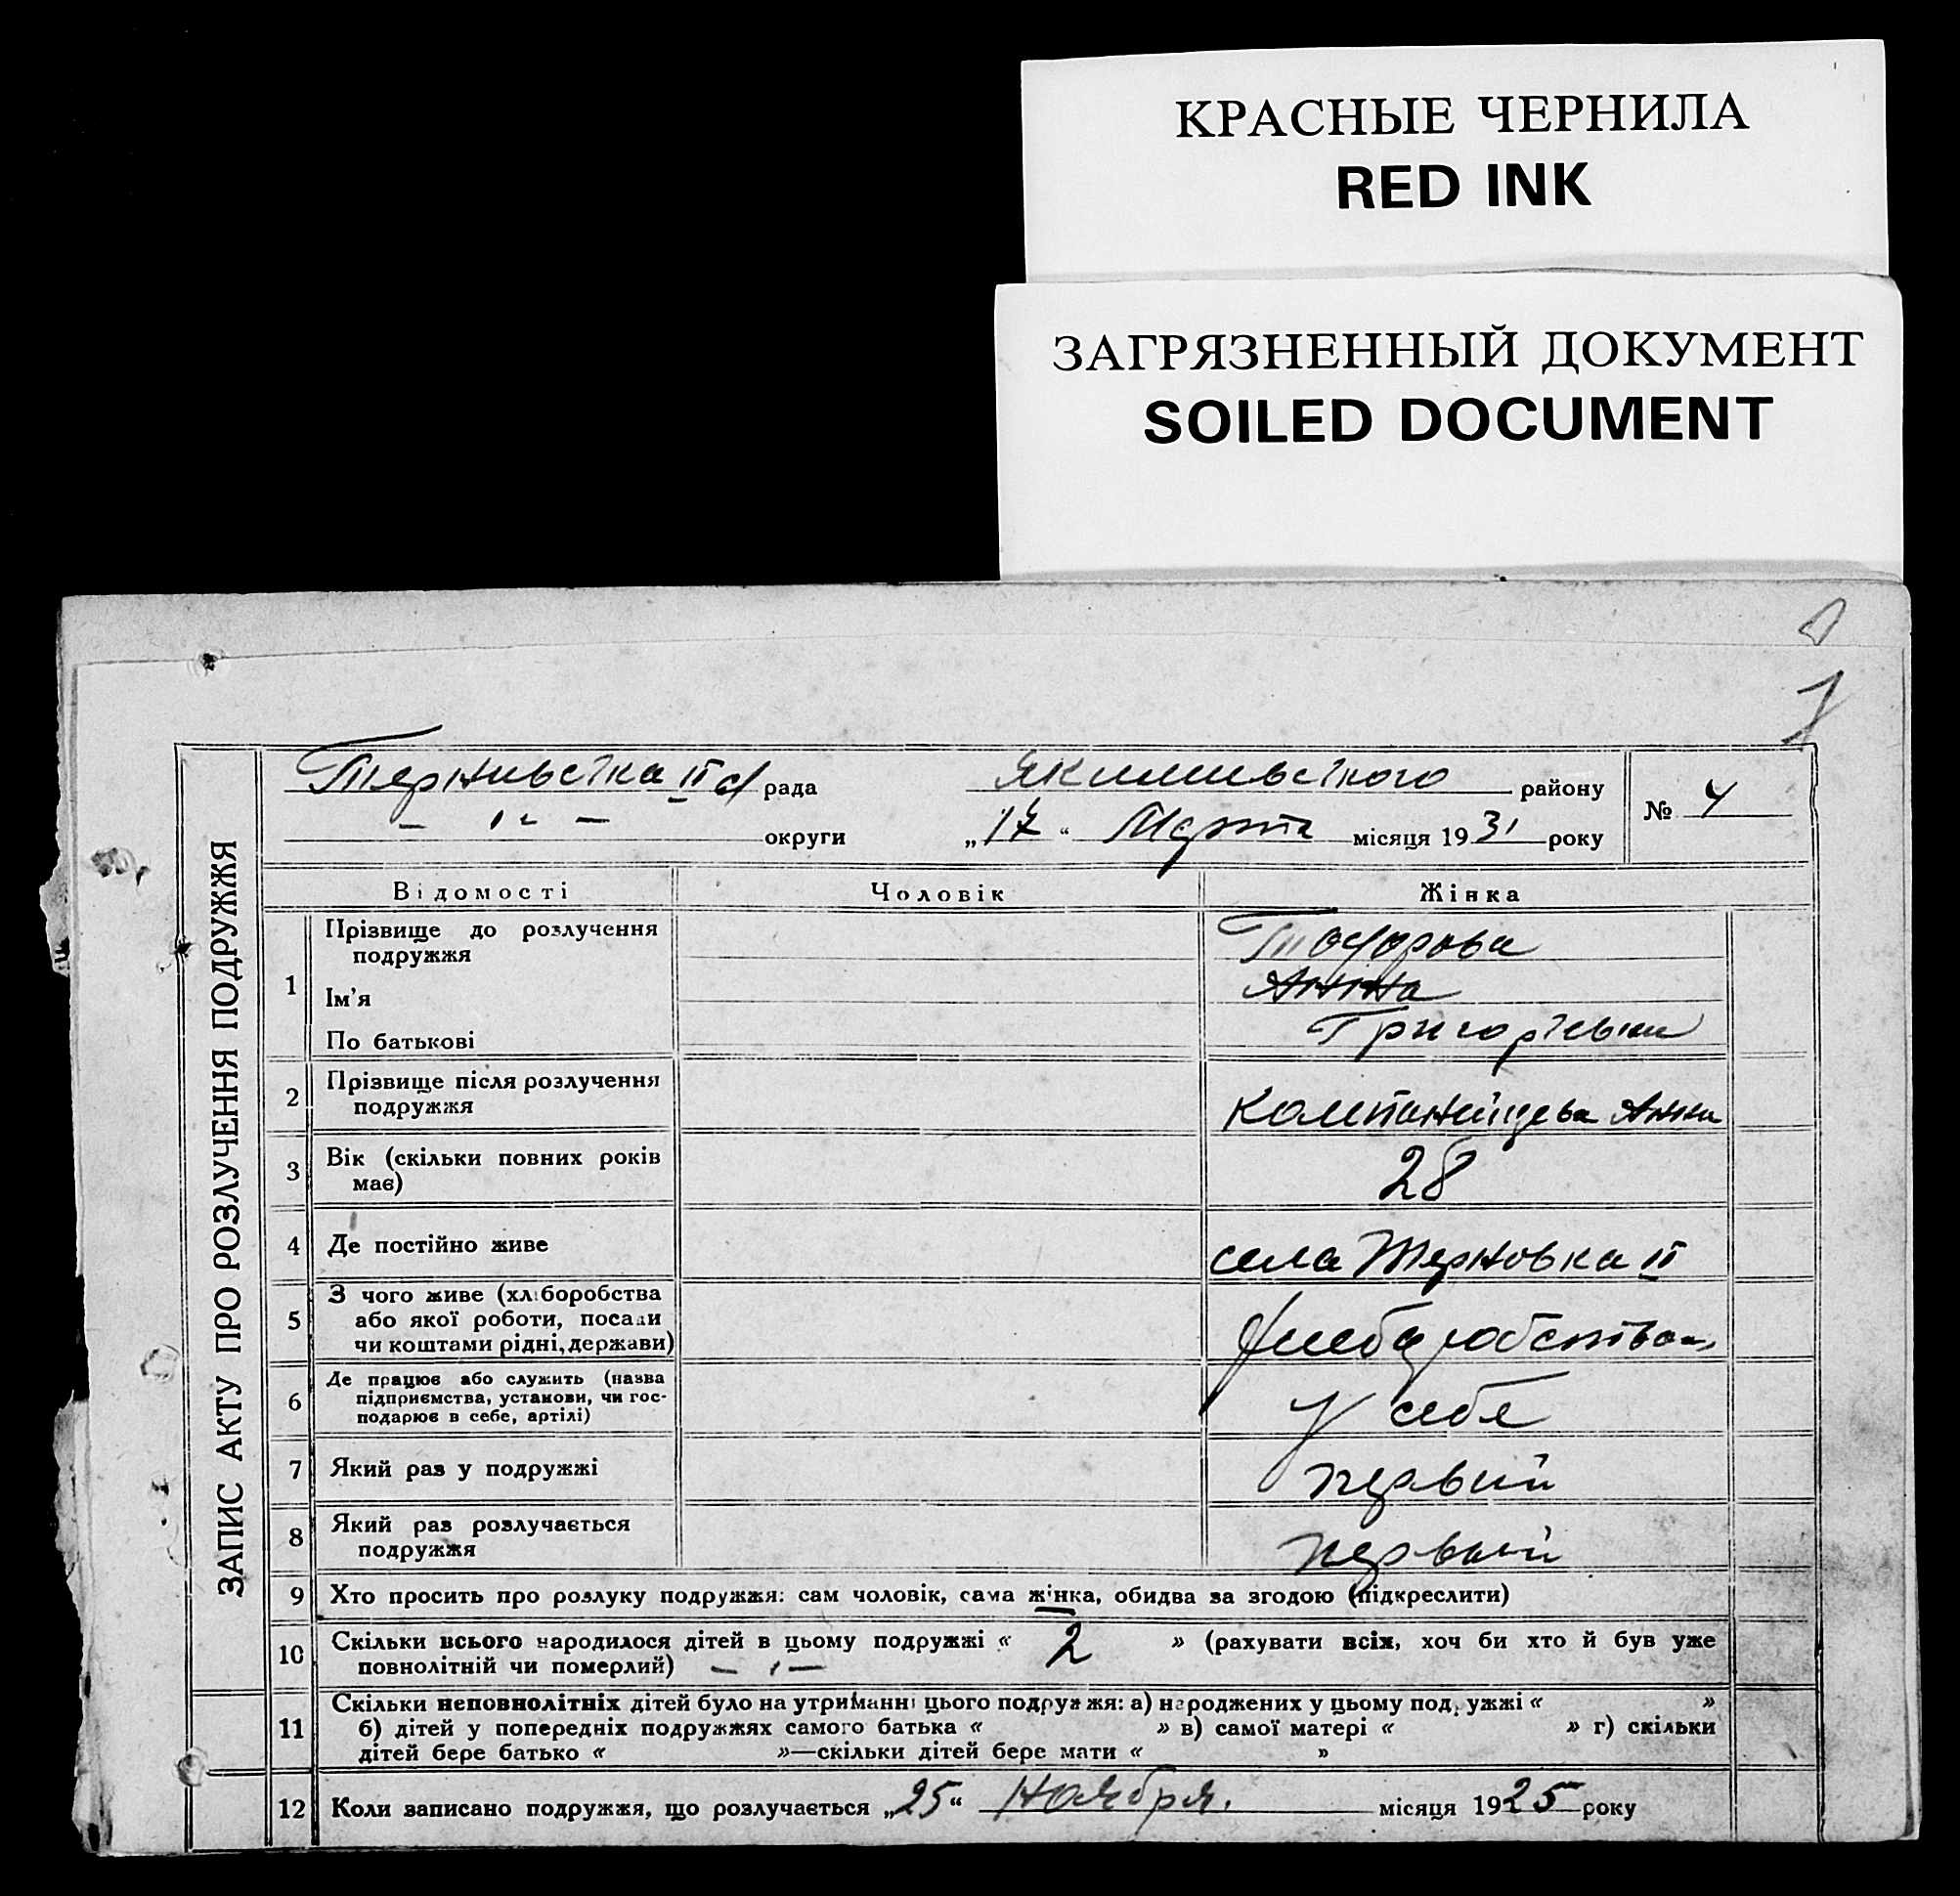 КРАСНЫЕ ЧЕРНИЛА
RED INK
ЗАГРЯЗНЕННЫЙ ДОКУМЕНТ
SOILED DOCUMENT
1
ЗАПИС АКТУ ПРО РОЗЛУЧЕННЯ ПОДРУЖЖЯ
Тернивська II рада Якимивського району № 4
— " — округи „17“ Марта місяця 1931 року
Відомості Чоловік Жінка
1 Прізвище до розлучення подружжя Тодорова
Ім'я Анна
По батькові Григорівна
2 Прізвище після розлучення
подружжя Анна
3 Вік (скільки повних років
має) 28
4 Де постійно живе села Терновка II
5 З чого живе (хліборобства
або якої роботи, посади
чи коштами рідні, держави)
6 Де працює або служить (назва
підприємства, установи, чи гос-
подарює в себе, артілі) У себя
7 Який раз у подружжі первий
8 Який раз розлучається
подружжя первый
9 Хто просить про розлуку подружжя: сам чоловік, сама жінка, обидва за згодою (підкреслити)
10 Скільки всього народилося дітей в цьому подружжі « 2 » (рахувати всіх, хоч би хто й був уже
повнолітній чи померлий) — " —
11 Скільки неповнолітніх дітей було на утриманні цього подружжя: а) народжених у цьому подружжі « »
б) дітей у попередніх подружжях самого батька « » в) самої матері « » г) скільки
дітей бере батько « »—скільки дітей бере мати « »
12 Коли записано подружжя, що розлучається „25“ Ноября. місяця 1925 року